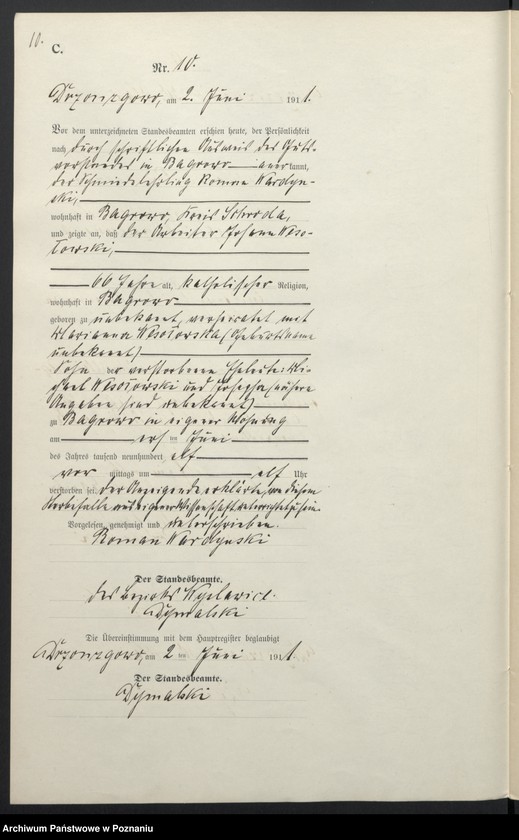 10.
C.
Nr. 10.
am 2. Juni 1911.
Vor dem unterzeichneten Standesbeamten erschien heute, der Persönlichkeit
nach durch schriftlichen Ausweis des Guts-
vorstandes in Bagrowo anerkannt,
der Schmiedelehrling Roman Wardyn-
ski,
wohnhaft in Bagrowo, Kreis Schroda,
und zeigte an, daß der Arbeiter Johann Weso-
łowski,
66 Jahre alt, katholischer Religion,
wohnhaft in Bagrowo
geboren zu unbekannt, verheiratet mit
Marianna Wesołowska (Geburtsname
unbekannt)
Sohn der verstorbenen Eheleute Mi-
chael Wesołowski und Josepha (nähere
Angaben sind unbekannt)
zu Bagrowo in eigener Wohnung
am ersten Juni
des Jahres tausend neunhundert elf
vor mittags um elf Uhr
verstorben sei. Der Anzeigende erklärte, von diesem
Sterbefalle aus eigener Wissenschaft unterrichtet zu sein.
Vorgelesen, genehmigt und unterschrieben.
Roman Wardynski
Der Standesbeamte.
des Bezirks
Dymalski
Die Übereinstimmung mit dem Hauptregister beglaubigt
am 2 ten Juni 1911.
Der Standesbeamte.
Dymalski
Archiwum Państwowe w Poznaniu